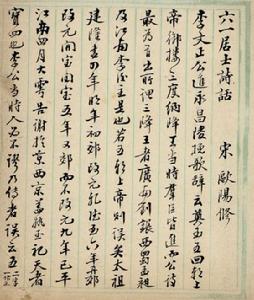 六一居士詩話 宋 歐陽修
李文正公進永昌陵挽歌辭云奠玉五回朝上
帝御樓三度納降王當時群臣皆進而公詩
最為首出所謂三降王者廣南劉鋹西蜀孟昶
及江南李後主是也若五朝上帝則誤矣太祖
建隆盡四年明年初郊改元乾德至六年再郊
改元開寶開寶五年又郊而不改元九年已平
江南四月大雩告謝於京西京蓋執玉祀天者
實四也李公當時人必不謬乃傳者誤云五